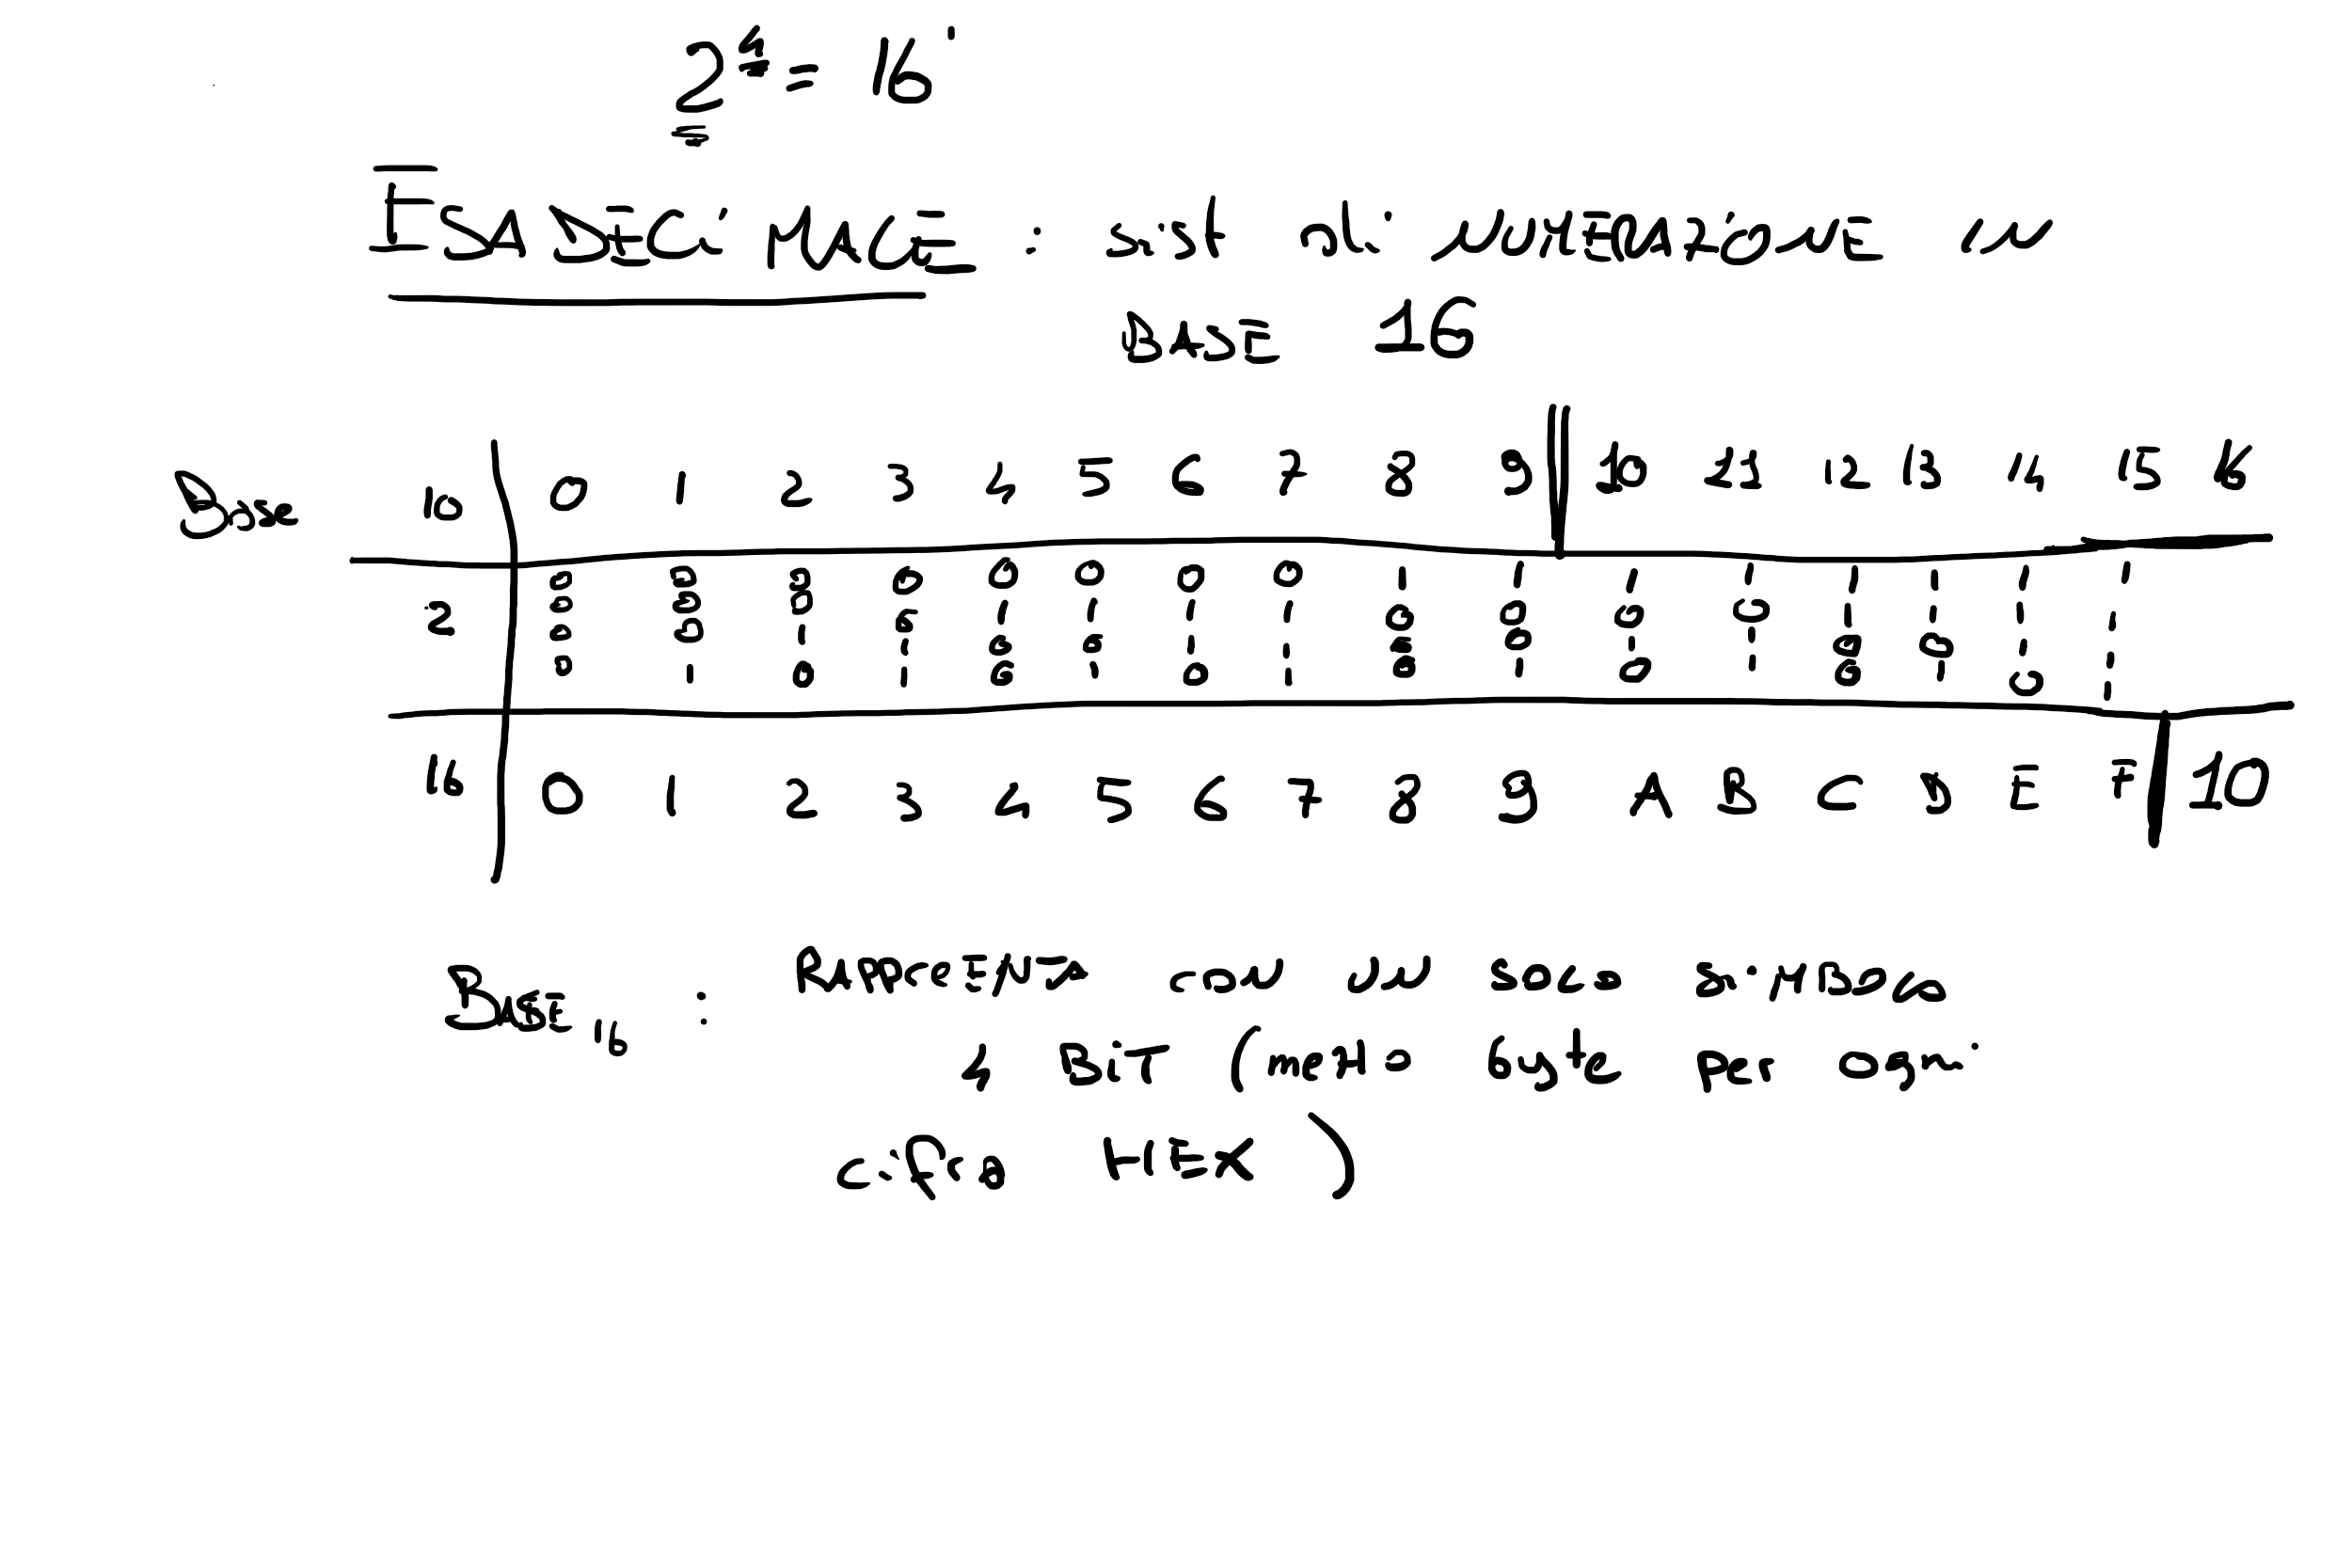 2⁴ = 16¹
ESADECIMALE : sist di NUMERAZIONE IN
BASE 16
Base 10 0 1 2 3 4 5 6 7 8 9 10 11 12 13 14 15 16
2 0000 0001 0010 0011 0100 0101 0110 0111 1000 1001 1010 1011 1100 1101 1110 1111
16 0 1 2 3 4 5 6 7 8 9 A B C D E F 10
BASE16 : RAPPRESENTA CON UN SOLO SIMBOLO
4 BIT (metà byte per ogni
cifra HEX )